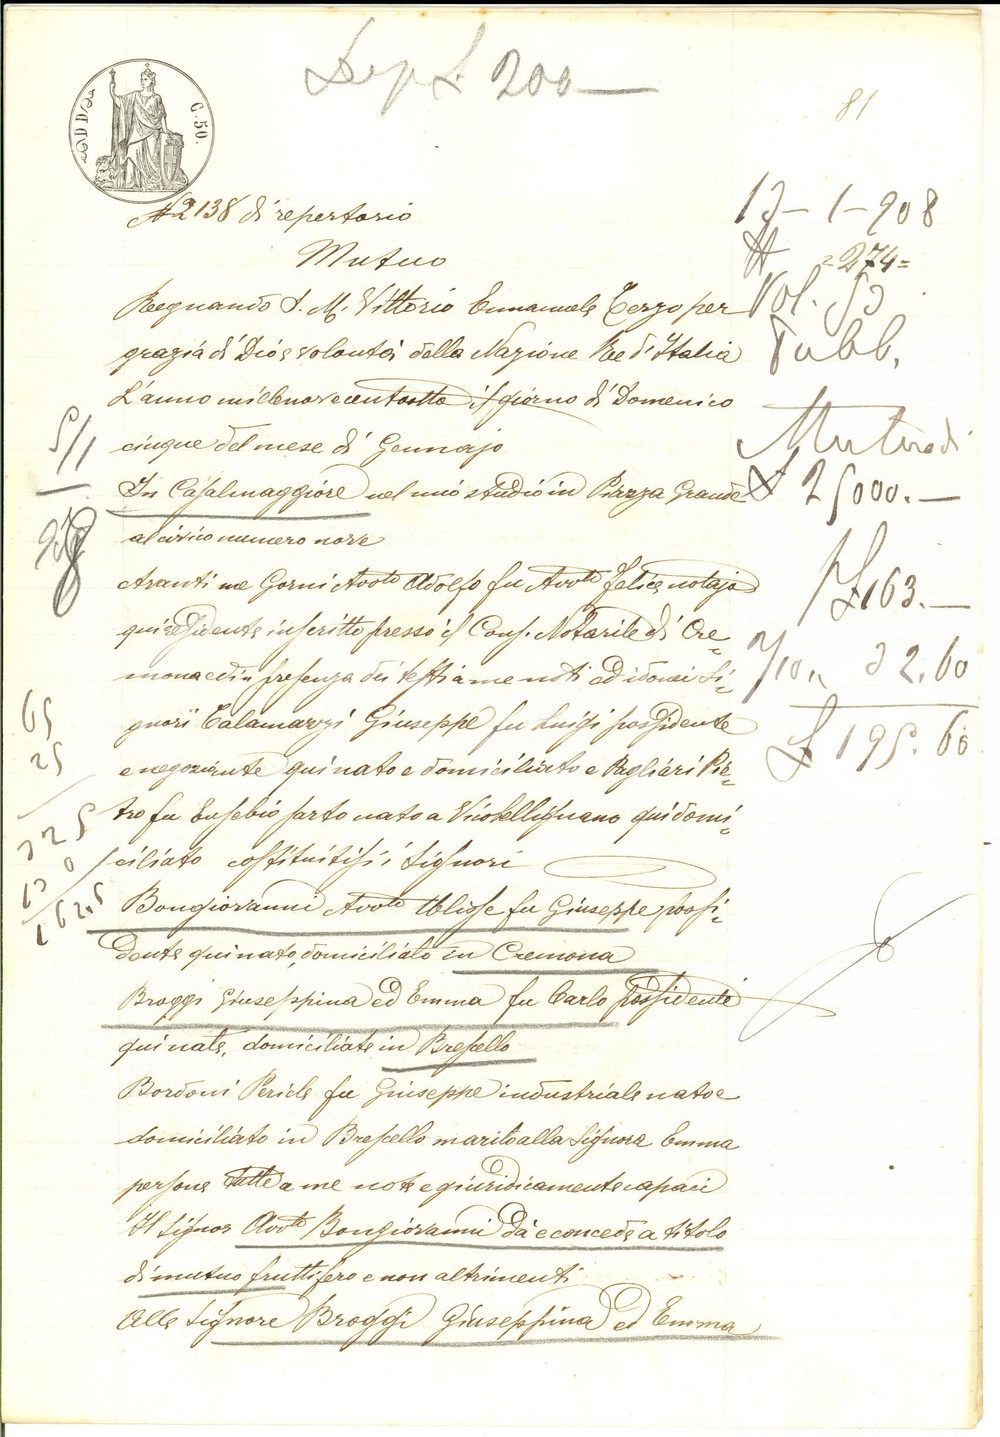 Dep. L. 200
81
C. 50.
N 2138 di repertorio
Mutuo
Regnando S. M. Vittorio Emanuele Terzo per
grazia di Dio e volontà della Nazione Re d'Italia
L'anno millenovecentootto il giorno di Domenica
cinque del mese di Gennajo
In Casalmaggiore nel mio studio in Piazza Grande
al civico numero nove
Avanti me Gorni Avvto Adolfo fu Avvto Felice notajo
qui residente inscritto presso il Cons. Notarile di Cre=
mona ed in presenza dei testi a me noti ed idonei Si=
gnori Calamazzi Giuseppe fu Luigi possidente
e negoziante qui nato e domiciliato e Pagliari Pie=
tro fu Eusebio sarto nato a Vicobellignano qui domi=
ciliato costituitisi i Signori
Bongiovanni Avvto Ulisse fu Giuseppe possi=
dente qui nato, domiciliato in Cremona
Broggi Giuseppina ed Emma fu Carlo possidenti
qui nate, domiciliate in Brescello
Bordoni Pericle fu Giuseppe industriale nato e
domiciliato in Brescello marito alla Signora Emma
persone tutte a me note e giuridicamente capaci
Il Signor Avvto Bongiovanni dà e concede a titolo
di mutuo fruttifero e non altrimenti
Alle Signore Broggi Giuseppina ed Emma
13-1-908
N =274=
Vol. 53
Pubb.
Mutuo di
£ 25000.—
£ 163.—
2/10 32.60
£ 195.60
5/1
65
25
325
130
162,5